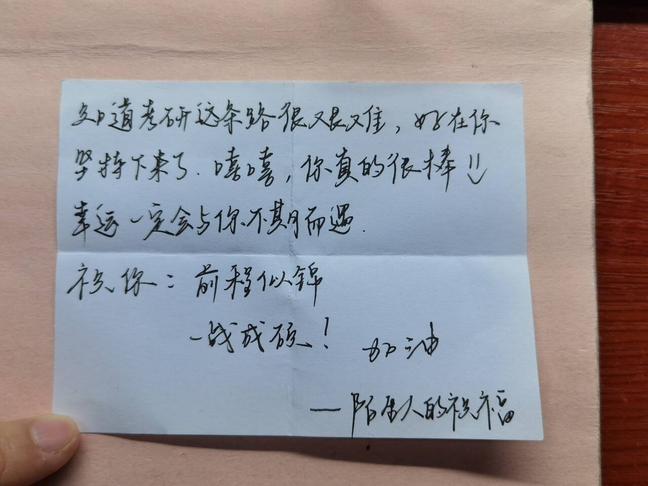 知道考研这条路很艰难，好在你
坚持下来了.嘻嘻，你真的很棒
幸运一定会与你不期而遇.
祝你：前程似锦
一战成硕！加油
—陌生人的祝福